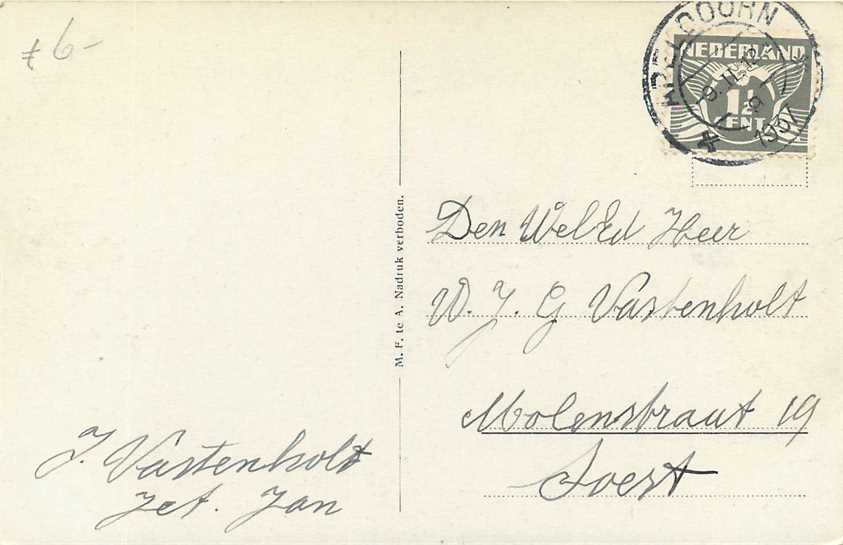 £ 6-
APELDOORN
NEDERLAND
1½
CENT
1937
M. F. te A. Nadruk verboden.
Den WelEd Heer
W. J. G Vastenholt
Molenstraat 19
Soest
J. Vastenholt
Jet. Jan